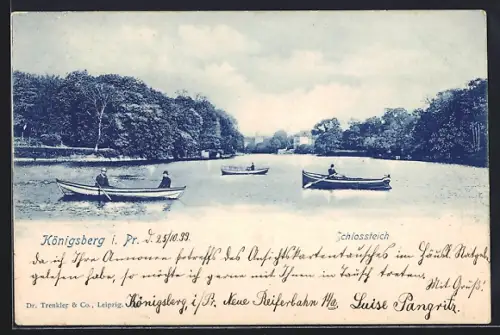 Königsberg i. Pr. d. 25/10.99.
Schlossteich
da ich Ihre Annonce betreffs des Ansichtskartentausches im Häusl. Ratgeb.
gelesen habe, so möchte ich gerne mit Ihnen in Tausch treten.
Mit Gruß!
Dr. Trenkler & Co., Leipzig. Königsberg i/Pr. Neue Reiferbahn Luise Pangritz.